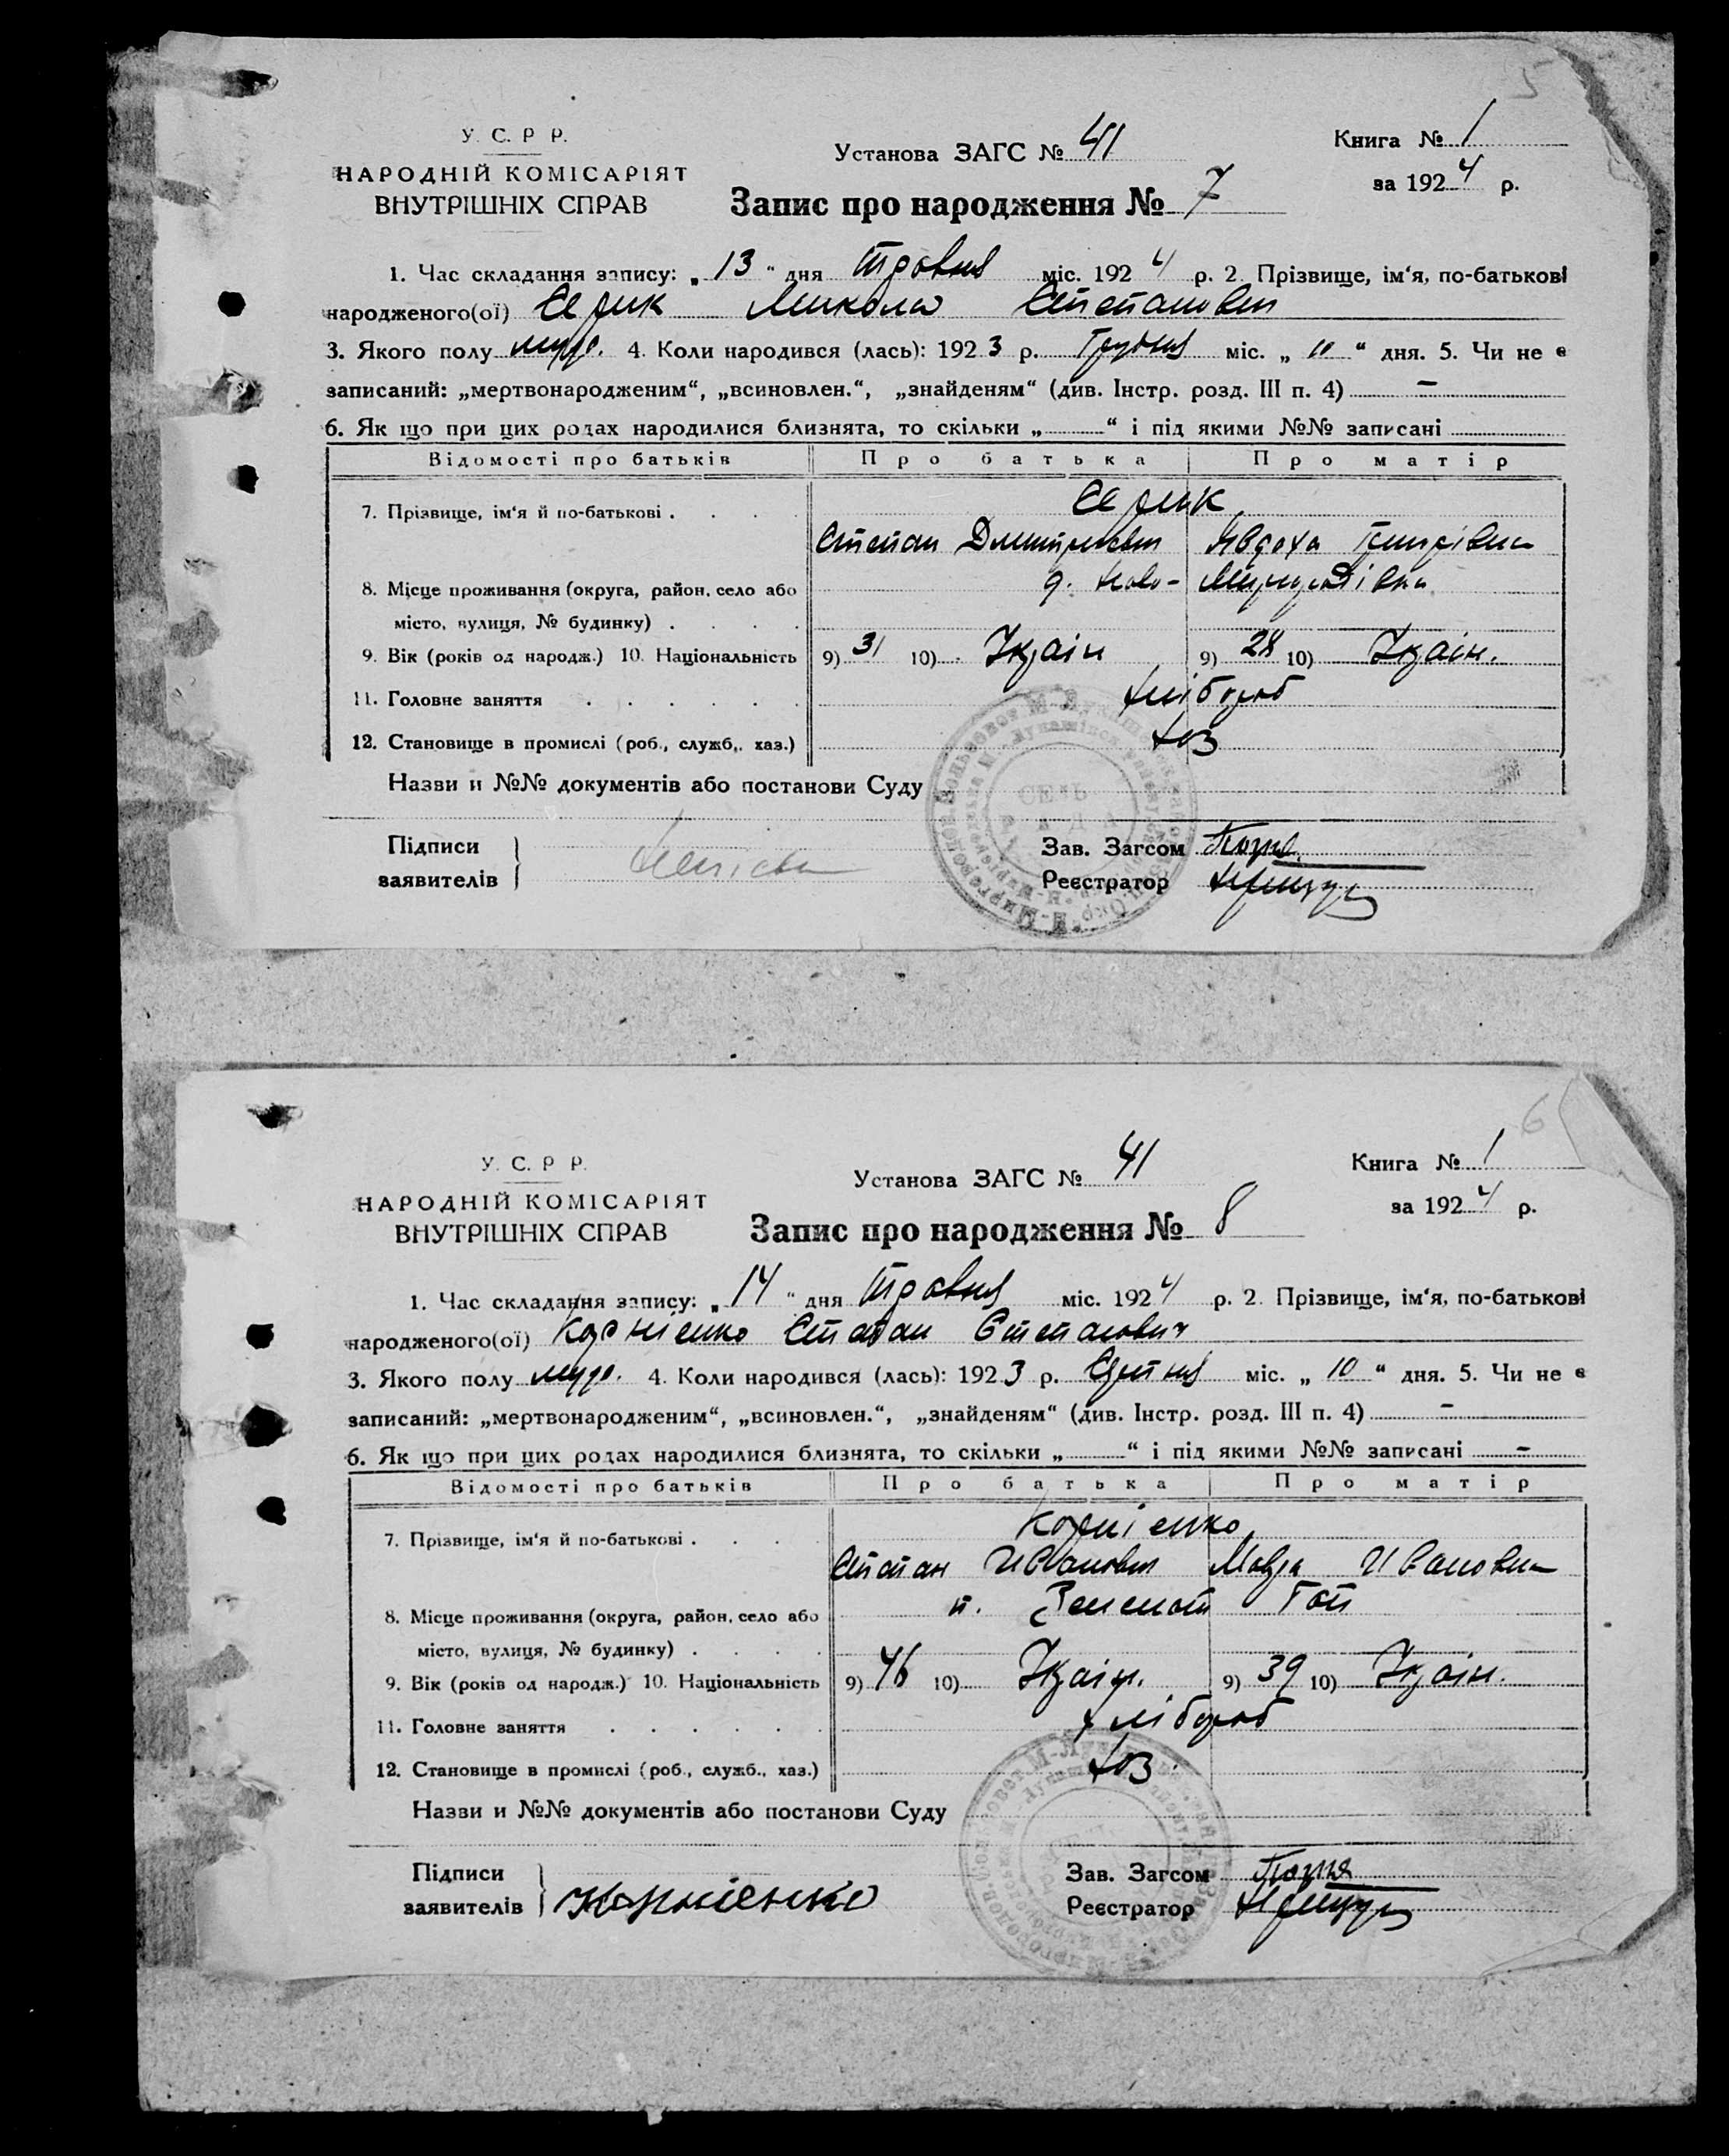 5
У. С. Р Р.
НАРОДНІЙ КОМІСАРІЯТ
ВНУТРІШНІХ СПРАВ
Установа ЗАГС № 41
Книга № 1
за 1924 р.
Запис про народження № 7
1. Час складання запису: „13" дня Травня міс. 1924 р. 2. Прізвище, ім'я, по-батькові
народженого(ої) Микола Степанович
3. Якого полу муж. 4. Коли народився (лась): 1923 р. Грудня міс. „10" дня. 5. Чи не є
записаний: „мертвонародженим", „всиновлен.", „знайденям" (див. Інстр. розд. III п. 4) –
6. Як що при цих родах народилися близнята, то скільки „ " і під якими №№ записані
Відомості про батьків Про батька Про матір
7. Прізвище, ім'я й по-батькові
Степан Дмитриевич Явдоха
8. Місце проживання (округа, район, село або Ново-
місто, вулиця, № будинку)
9. Вік (років од народж.) 10. Національність 9) 31 10) Украін 9) 28 10) Украін.
11. Головне заняття хлібороб
12. Становище в промислі (роб., служб., хаз.) хоз
Назви и №№ документів або постанови Суду
Підписи
заявителів
Зав. Загсом
Реєстратор
6
У. С. Р Р.
НАРОДНІЙ КОМІСАРІЯТ
ВНУТРІШНІХ СПРАВ
Установа ЗАГС № 41
Книга № 1
за 1924 р.
Запис про народження № 8
1. Час складання запису: „14" дня Травня міс. 1924 р. 2. Прізвище, ім'я, по-батькові
народженого(ої) Корнієнко Степан Степанович
3. Якого полу муж. 4. Коли народився (лась): 1923 р. міс. „10" дня. 5. Чи не є
записаний: „мертвонародженим", „всиновлен.", „знайденям" (див. Інстр. розд. III п. 4) –
6. Як що при цих родах народилися близнята, то скільки „ " і під якими №№ записані –
Відомості про батьків Про батька Про матір
7. Прізвище, ім'я й по-батькові Корнієнко
Степан Иванович Мавра Ивановна
8. Місце проживання (округа, район, село або
місто, вулиця, № будинку)
9. Вік (років од народж.) 10. Національність 9) 46 10) Украін. 9) 39 10) Украін.
11. Головне заняття хлібороб
12. Становище в промислі (роб., служб., хаз.) хоз
Назви и №№ документів або постанови Суду
Підписи
заявителів Корниенко
Зав. Загсом
Реєстратор